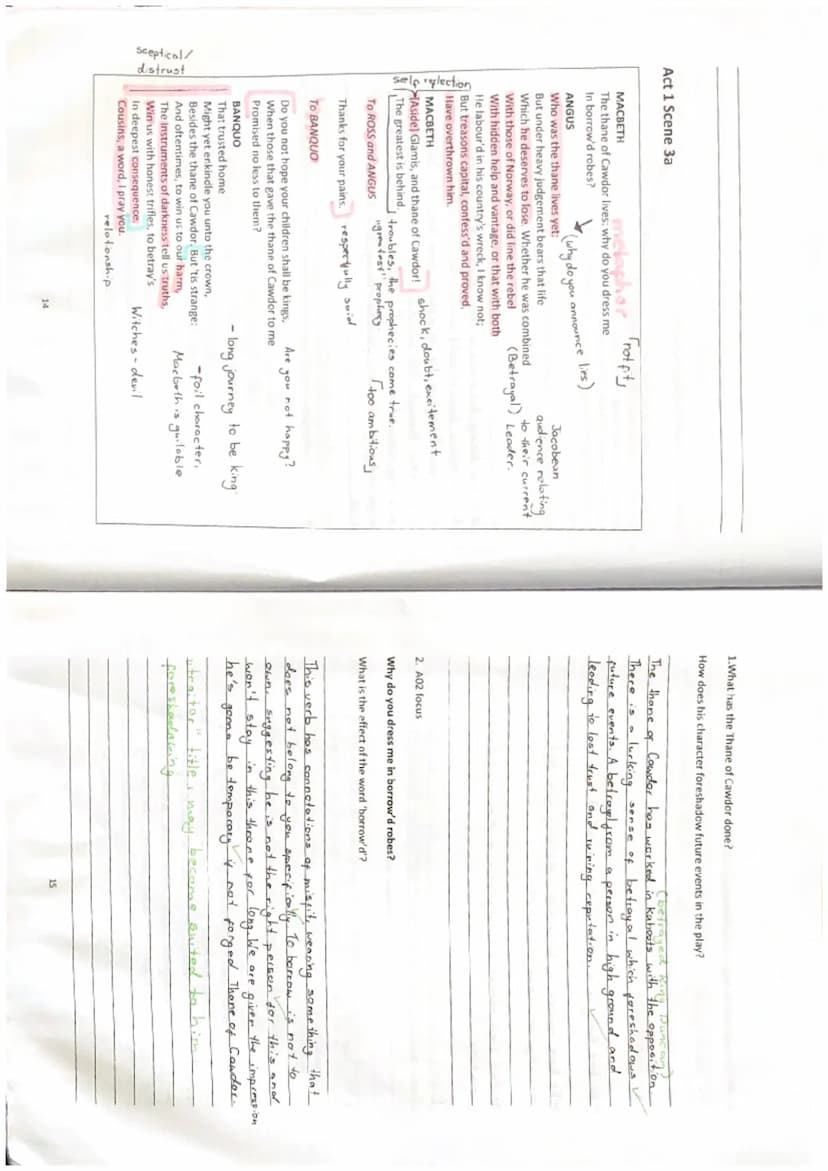 Act 1 Scene 3a
MACBETH
The thane of Cawdor lives: why do you dress me
In borrow'd robes?
metaphor
「not fit」
(why do you announce lies)
ANGUS
Who was the thane lives yet;
But under heavy judgement bears that life
Which he deserves to lose. Whether he was combined
With those of Norway, or did line the rebel
With hidden help and vantage, or that with both
He labour'd in his country's wreck, I know not;
But treasons capital, confess'd and proved,
Have overthrown him.
Jacobean
audience relating
to their current
Leader.
(Betrayal)
self reflection
MACBETH
[Aside] Glamis, and thane of Cawdor!
The greatest is behind.
shock, doubt, excitement
troubles, the prophecies come true.
"greatest" prophecy
「too ambitious」
To ROSS and ANGUS
Thanks for your pains.
respectfully said
To BANQUO
Do you not hope your children shall be kings,
When those that gave the thane of Cawdor to me
Promised no less to them?
Are you not happy?
BANQUO
That trusted home
Might yet enkindle you unto the crown,
Besides the thane of Cawdor. But 'tis strange:
And oftentimes, to win us to our harm,
The instruments of darkness tell us truths,
Win us with honest trifles, to betray's
In deepest consequence.
Cousins, a word, I pray you.
- long journey to be king
- foil character.
Macbeth is guilable
sceptical/
distrust
Witches - devil
relationship
14
1.What has the Thane of Cawdor done?
How does his character foreshadow future events in the play?
(betrayed King Duncan)
The thane of Cawdor has worked in kahoots with the opposition
There is a lurking sense of betrayal which foreshadows
future events. A betrayl from a person in high ground and
leading to lost trust and ruining reputation.
2. A02 focus
Why do you dress me in borrow'd robes?
What is the effect of the word 'borrow'd'?
This verb has connotations of misfit, wearing something that
does not belong to you specifically. To borrow is not to
own, suggesting he is not the right person for this and
won't stay in this throne for long. We are given the impression
he's gonna be temporary if not forged Thane of Cawdor.
"traitor" title, may become suited to him
foreshadowing
15